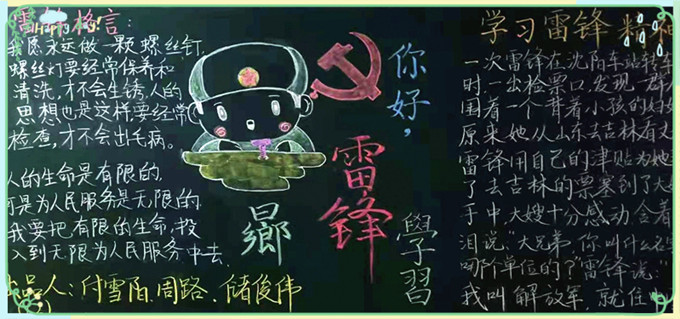 雷锋格言:
我愿永远做一颗螺丝钉.
螺丝灯要经常保养和
清洗,才不会生锈.人的
思想也是这样,要经常
检查,才不会出毛病。
人的生命是有限的.
可是为人民服务是无限的
我要把有限的生命,投
入到无限为人民服务中去.
人:付雪陌.周路.储俊伟
你好,
雷锋
學習
學习雷锋精神
一次雷锋在沈阳车站转车
时.一出检票口,发现一群人
围着一个背着小孩的妇女
原来她从山东去吉林看丈
雷锋用自己的津贴为她
了去吉林的票塞到了大嫂
手中.大嫂十分感动含着
泪说:“大兄弟.你叫什么名
哪个单位的?”雷锋说:“
我叫解放军.就住